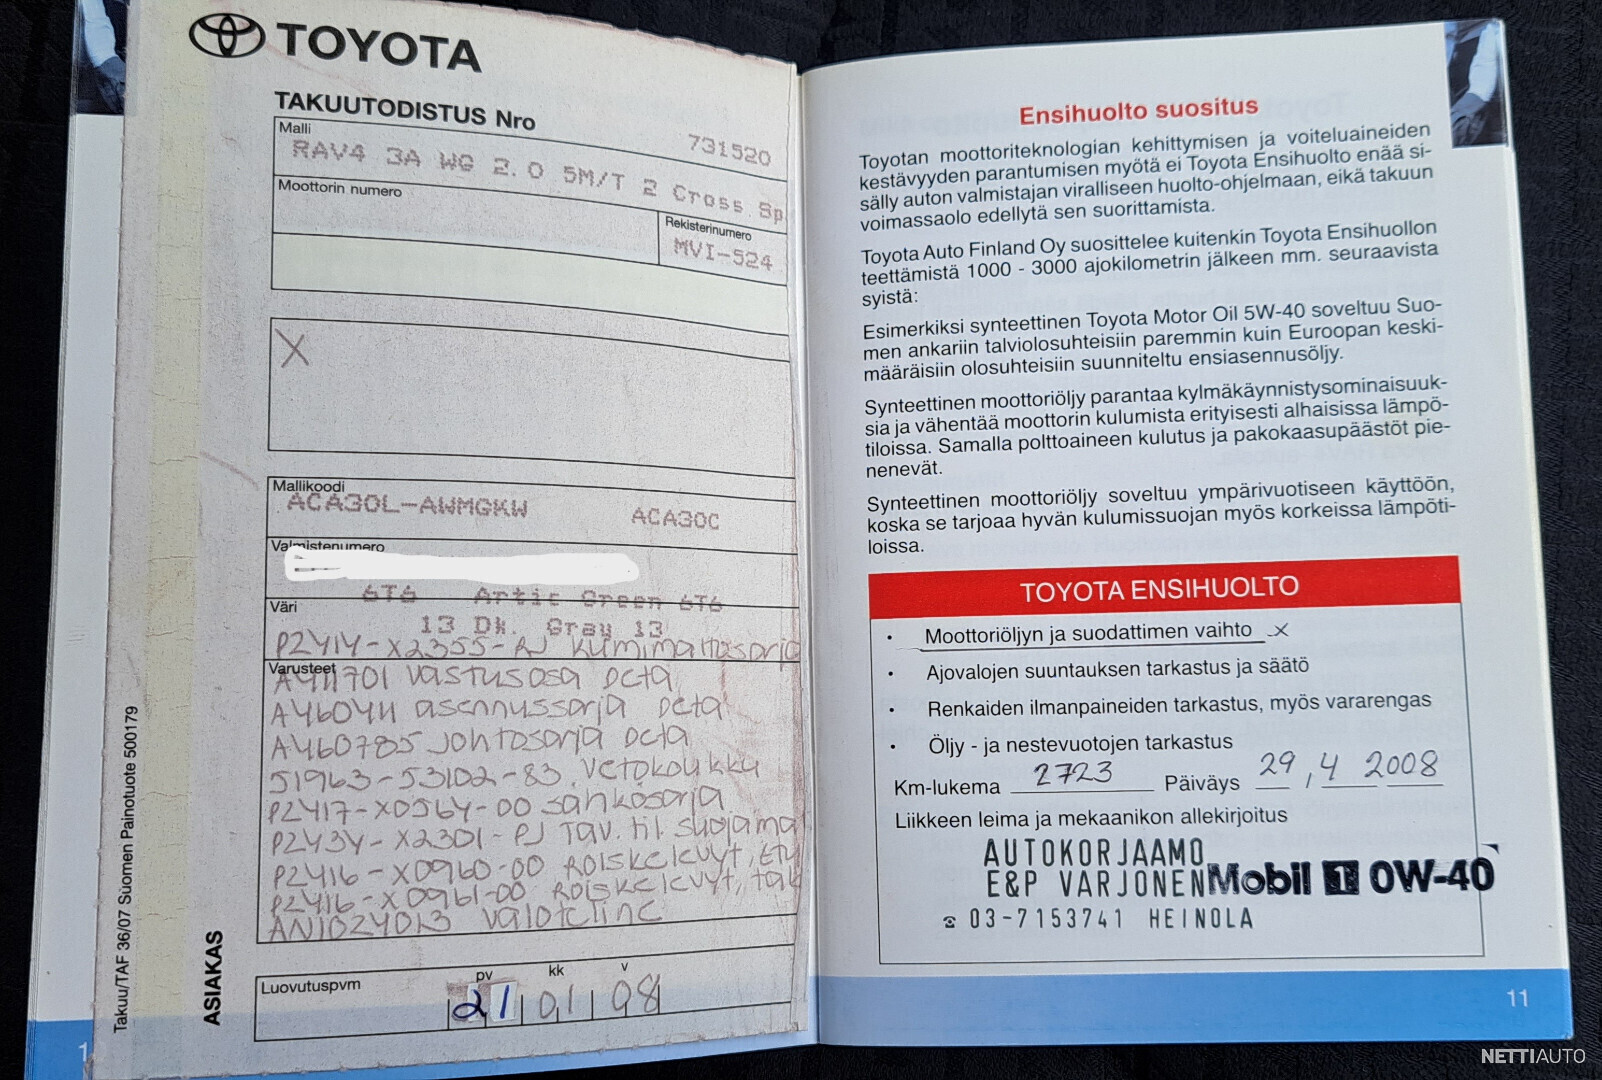 TOYOTA
TAKUUTODISTUS Nro
731520
Malli
RAV4 3A WG 2.0 5M/T 2 Cross Sp
Moottorin numero
Rekisterinumero
MVI-524
X
Mallikoodi
ACA30L-AWMGKW ACA30C
Valmistenumero
6T6 Artic Green 6T6
Väri
13 Dk. Gray 13
PZ414-X2355-PJ Kumimattosarja
Varusteet
A411701 vastusosa Defa
A460411 asennussarja Defa
A460785 Johtosarja Defa
51963-53102-83 Vetokoukku
PZ417-X0564-00 sähkösarja
PZ434-X2301-PJ Tav. til. suojama
PZ416-X0960-00 Roiskeläpyt, Etu
PZ416-X0961-00 Roiskeläpyt, tak
Luovutuspvm
pv kk v
21 01 08
ASIAKAS
Takuu/TAF 36/07 Suomen Painotuote 500179
1
Ensihuolto suositus
Toyotan moottoriteknologian kehittymisen ja voiteluaineiden
kestävyyden parantumisen myötä ei Toyota Ensihuolto enää si-
sälly auton valmistajan viralliseen huolto-ohjelmaan, eikä takuun
voimassaolo edellytä sen suorittamista.
Toyota Auto Finland Oy suosittelee kuitenkin Toyota Ensihuollon
teettämistä 1000 - 3000 ajokilometrin jälkeen mm. seuraavista
syistä:
Esimerkiksi synteettinen Toyota Motor Oil 5W-40 soveltuu Suo-
men ankariin talviolosuhteisiin paremmin kuin Euroopan keski-
määräisiin olosuhteisiin suunniteltu ensiasennusöljy.
Synteettinen moottoriöljy parantaa kylmäkäynnistysominaisuuk-
sia ja vähentää moottorin kulumista erityisesti alhaisissa lämpö-
tiloissa. Samalla polttoaineen kulutus ja pakokaasupäästöt pie-
nenevät.
Synteettinen moottoriöljy soveltuu ympärivuotiseen käyttöön,
koska se tarjoaa hyvän kulumissuojan myös korkeissa lämpöti-
loissa.
TOYOTA ENSIHUOLTO
• Moottoriöljyn ja suodattimen vaihto X
• Ajovalojen suuntauksen tarkastus ja säätö
• Renkaiden ilmanpaineiden tarkastus, myös vararengas
• Öljy - ja nestevuotojen tarkastus
Km-lukema 2723 Päiväys 29, 4 2008
Liikkeen leima ja mekaanikon allekirjoitus
AUTOKORJAAMO
E&P VARJONEN Mobil 1 0W-40
☎ 03-7153741 HEINOLA
11
NETTIAUTO